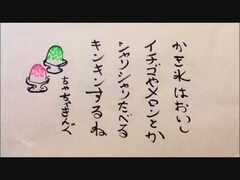 かき氷はおいし
イチゴやメロンとか
シャリシャリたべる
キンキンするね